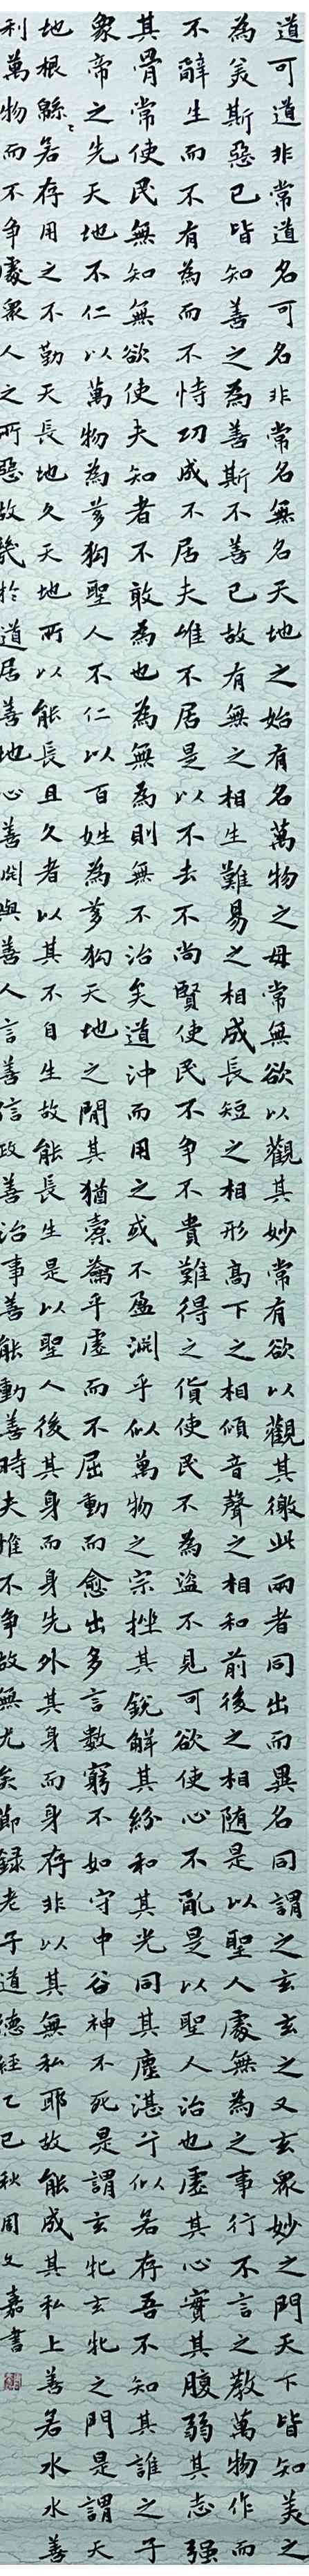 道可道非常道名可名非常名無名天地之始有名萬物之母常無欲以觀其妙常有欲以觀其徼此兩者同出而異名同謂之玄玄之又玄眾妙之門天下皆知美之
為美斯惡已皆知善之為善斯不善已故有無之相生難易之相成長短之相形高下之相傾音聲之相和前後之相随是以聖人處無為之事行不言之教萬物作而
不辭生而不有為而不恃功成不居夫唯不居是以不去不尚賢使民不争不貴難得之貨使民不為盜不見可欲使心不亂是以聖人治也虛其心實其腹弱其志强
其骨常使民無知無欲使夫知者不敢為也為無為則無不治矣道沖而用之或不盈淵乎似萬物之宗挫其銳解其紛和其光同其塵湛兮似若存吾不知其誰之子
象帝之先天地不仁以萬物為芻狗聖人不仁以百姓為芻狗天地之間其猶橐籥乎虛而不屈動而愈出多言數窮不如守中谷神不死是謂玄牝玄牝之門是謂天
地根緜〻若存用之不勤天長地久天地所以能長且久者以其不自生故能長生是以聖人後其身而身先外其身而身存非以其無私耶故能成其私上善若水水善
利萬物而不争處衆人之所惡故幾於道居善地心善淵與善人言善信政善治事善能動善時夫惟不争故無尤矣節録老子道德經乙巳秋周文嘉書